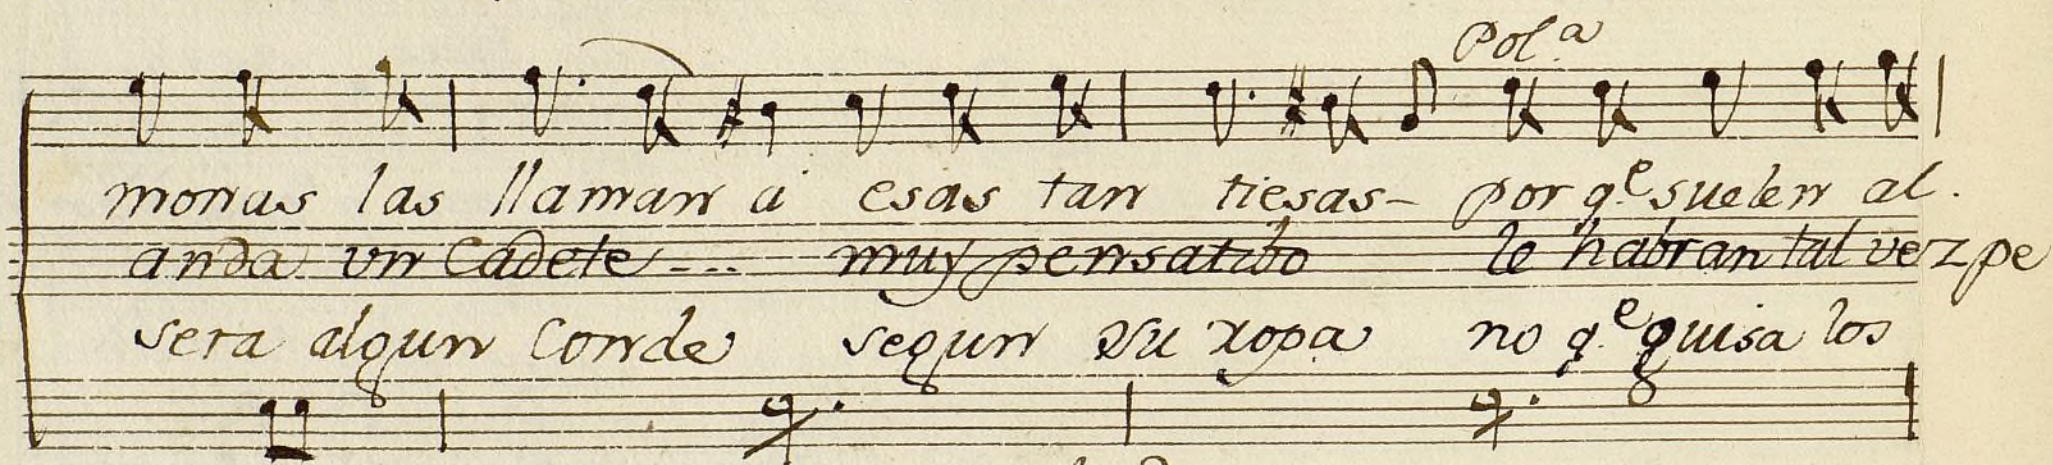 Pol.a
monas las llaman a esas tan tiesas- por q.e suelen al.
anda un Cadete --- muy pensatibo le habran tal vez pe
sera algun Conde segun su ropa no q.e guisa los